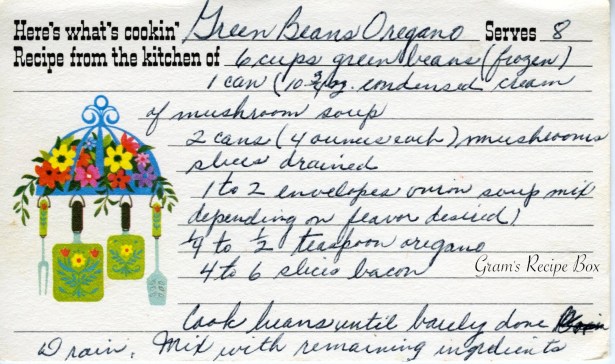 Here's what's cookin' Green Beans Oregano Serves 8
Recipe from the kitchen of 6 cups green beans (frozen)
1 can (10 3/4 oz. condensed cream
of mushroom soup
2 cans (4 ounces each) mushrooms
slices drained
1 to 2 envelopes onion soup mix
depending on flavor desired)
1/4 to 1/2 teaspoon oregano
4 to 6 slices bacon
Gram's Recipe Box
Cook beans until barely done
Drain. Mix with remaining ingredients